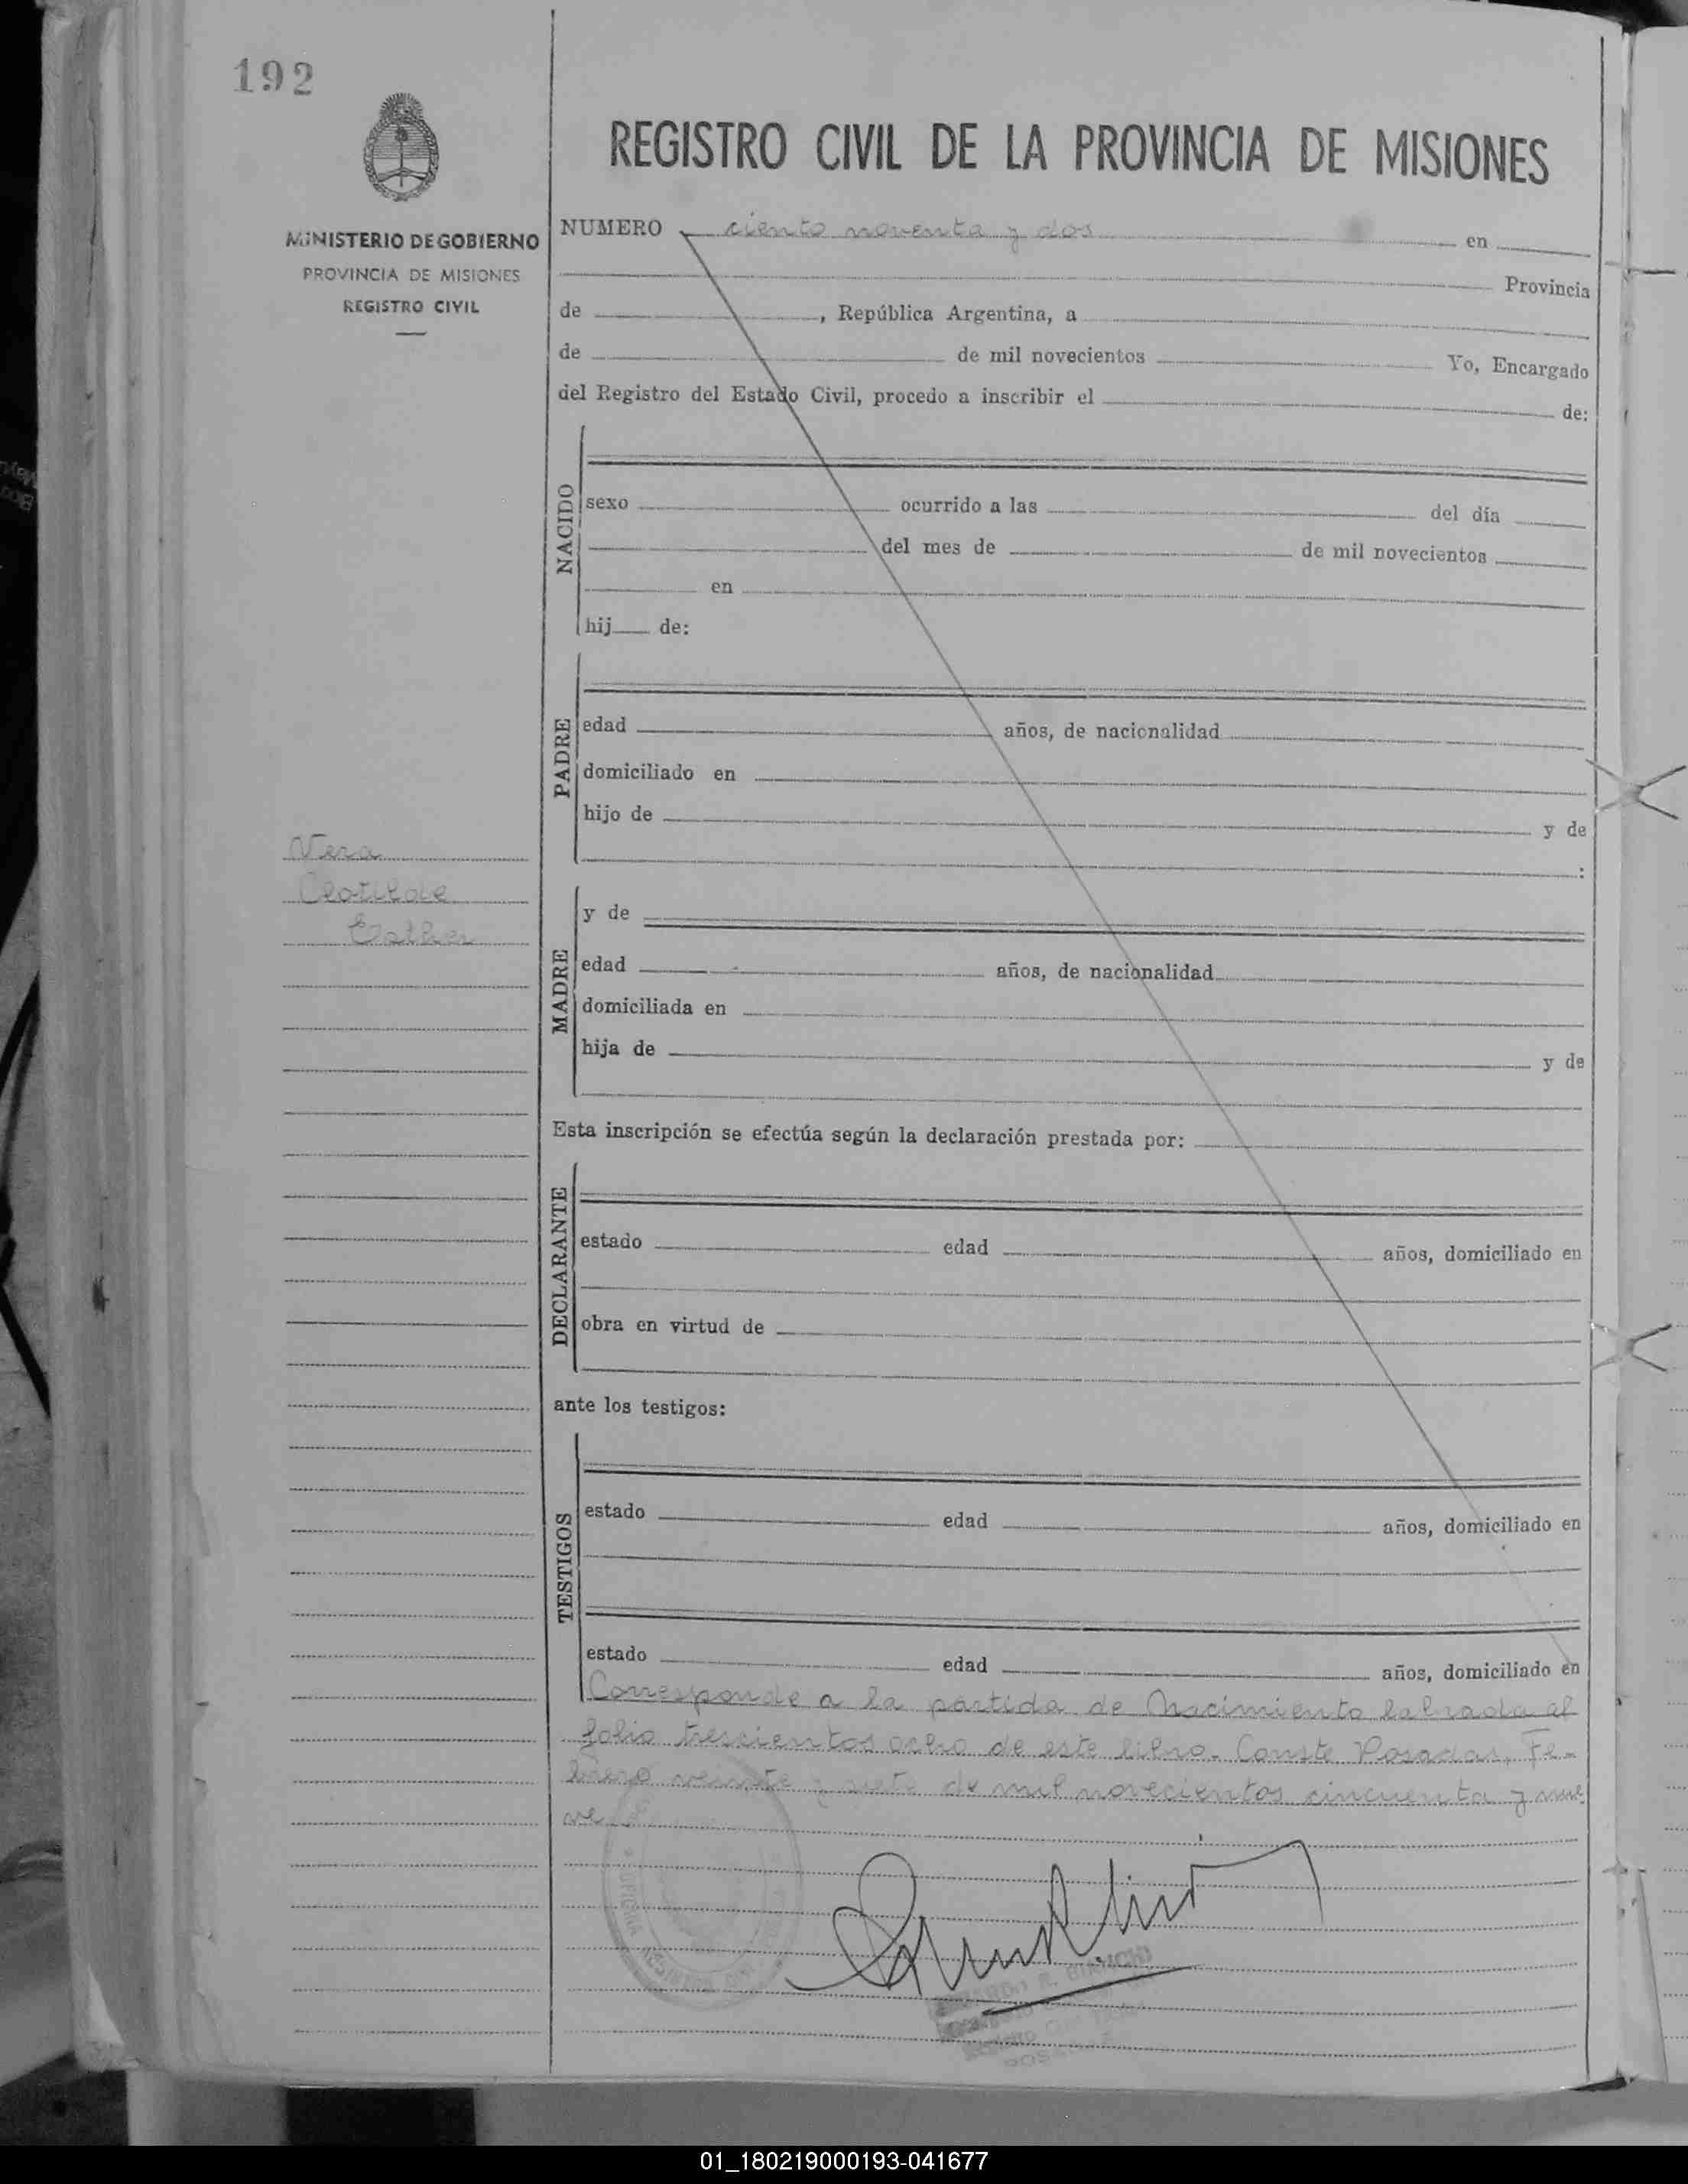 192
REGISTRO CIVIL DE LA PROVINCIA DE MISIONES
MINISTERIO DE GOBIERNO
PROVINCIA DE MISIONES
REGISTRO CIVIL
NUMERO ciento noventa y dos en
Provincia
de , República Argentina, a
de de mil novecientos Yo, Encargado
del Registro del Estado Civil, procedo a inscribir el de:
NACIDO
sexo ocurrido a las del día
del mes de de mil novecientos
en
hij de:
PADRE
edad años, de nacionalidad
domiciliado en
hijo de y de
:
Vera
Clotilde
Esther
MADRE
y de
edad años, de nacionalidad
domiciliada en
hija de y de
Esta inscripción se efectúa según la declaración prestada por:
DECLARANTE
estado edad años, domiciliado en
obra en virtud de
ante los testigos:
TESTIGOS
estado edad años, domiciliado en
estado edad años, domiciliado en
Corresponde a la partida de Nacimiento labrada al
folio trescientos ocho de este libro. Conste Posadas, Fe-
brero veinte y siete de mil novecientos cincuenta y nue
ve
OFICINA
R. BIANCHI
01_180219000193-041677